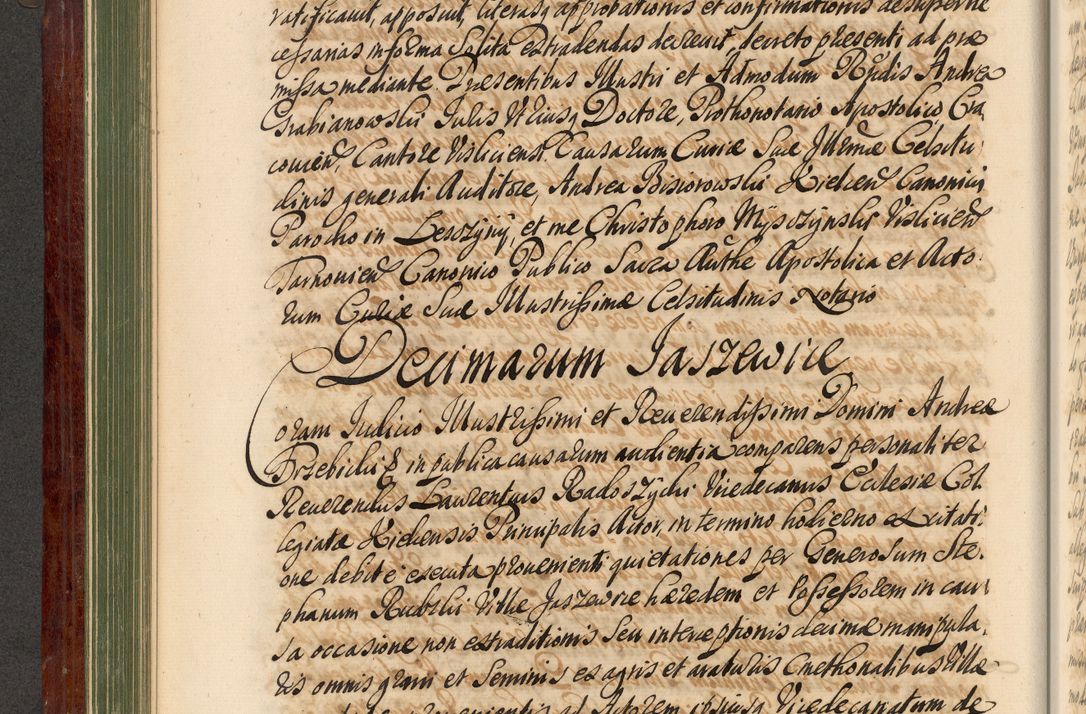 ratificavit, apposuit, literasq approbationis et confirmationis desuper ne
cessarias in forma Solita extradendas decrevit, decreto presenti ad præ
missa mediante. Presentibus Illustri et Admodum Rndis Andrea
Grabianowski Juris Vtriusq Doctore, Prothonotario Apostolico Cra
couien, Cantore Visliciensi Causarum Curiæ Suæ Illrmæ Celsitu
dinis generali Auditore, Andrea Bisiorowski Kielcen Canonicis
Parocho in Leszczyny, et me Christophoro Myszczynski Vislicien
Tarnovien Canonico Publico Sacra Authe Apostolica et Acto
rum Curiæ Suæ Illustrissimæ Celsitudinis Notario
Decimarum Jaszewice
Coram Judicio Illustrissimi et Reverendissimi Domini Andreæ
Trzebicki & in publica causarum audientia comparens personaliter
Reverendus Laurentius Radoszycki Vicedecanus Ecclesiæ Col
legiatæ Kielcensis Principalis Actor, in termino hodierno ex citati
one debite executa provenienti quietationes per Generosum Ste
phanum Rudzki Villæ Jaszewice hæredem et Possessorem in cau
sa occasione non extraditionis seu interceptionis decimæ manipula
ris omnis grani et Seminis ex agris et araturis Cmethonalibus Villæ
ad Actorem ipsiusq Vicedecanatum de